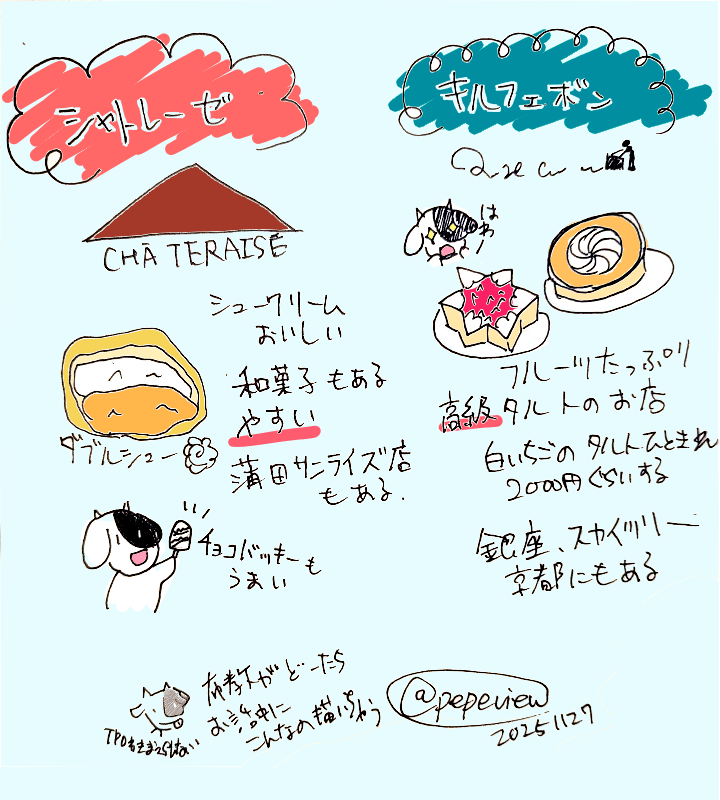 シャトレーゼ
CHATERAISE
シュークリーム
おいしい
和菓子もある
やすい
ダブルシュー
蒲田サンライズ店
もある.
チョコバッキーも
うまい
キルフェボン
はわー
フルーツたっぷり
高級タルトのお店
白いちごのタルトひときれ
2000円ぐらいする
銀座、スカイツリー
京都にもある
TPOをきまえらない
がどーたら
お話中に
こんなの描いちゃう
@pepeview
20251127